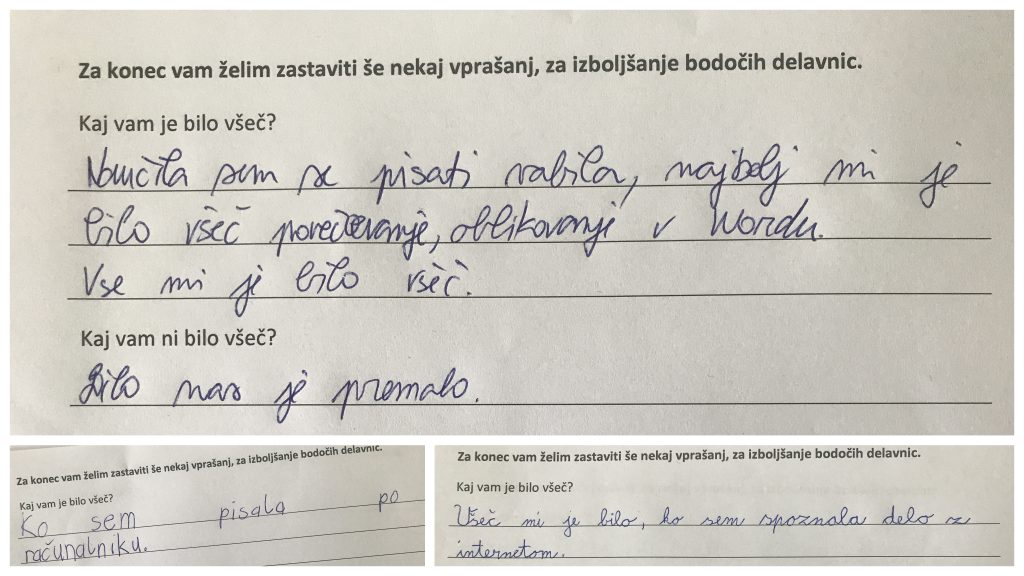 Za konec vam želim zastaviti še nekaj vprašanj, za izboljšanje bodočih delavnic.
Kaj vam je bilo všeč?
Naučila sem se pisati vabila, najbolj mi je
bilo všeč povečevanje, oblikovanje v Wordu.
Vse mi je bilo všeč.
Kaj vam ni bilo všeč?
Bilo nas je premalo.
Za konec vam želim zastaviti še nekaj vprašanj, za izboljšanje bodočih delavnic.
Kaj vam je bilo všeč?
Ko sem pisala po
računalniku.
Za konec vam želim zastaviti še nekaj vprašanj, za izboljšanje bodočih delavnic.
Kaj vam je bilo všeč?
Všeč mi je bilo, ko sem spoznala delo z
internetom.